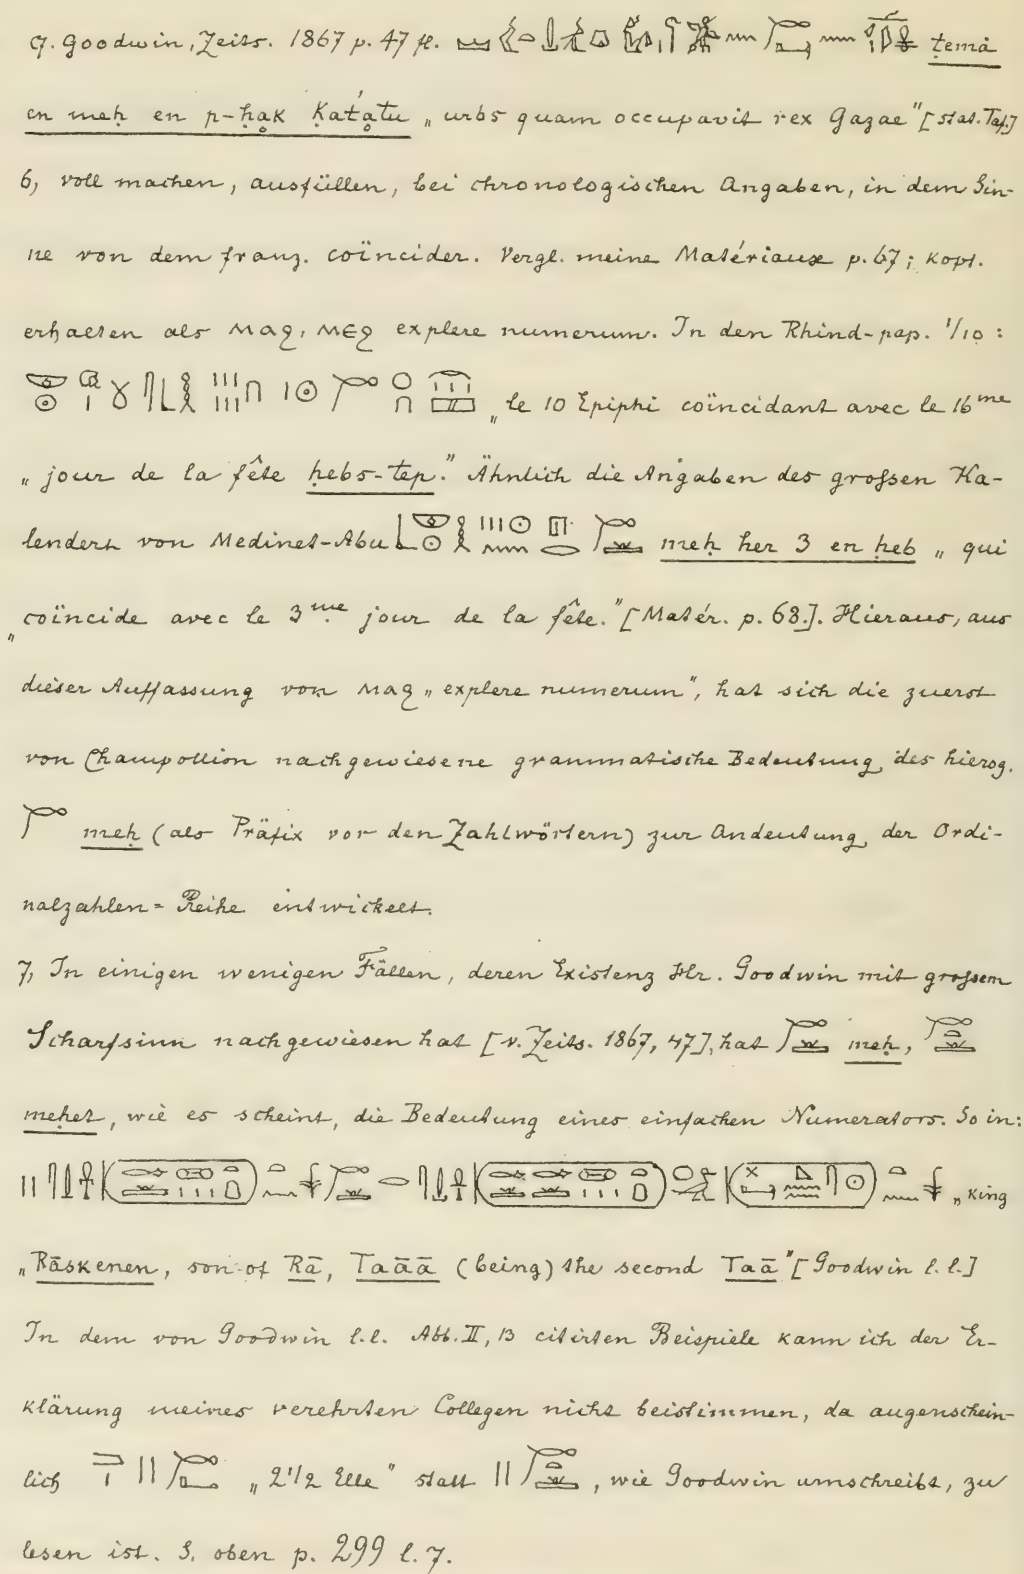 cf. Goodwin, Zeits. 1867 p. 47 fl. ṭemȧ
en meḥ en p-ḥaḳ Ḳaťaťu „urbs quam occupavit rex Gazae" [stat. Taf.]
6, voll machen, ausfüllen, bei chronologischen Angaben, in dem Sin-
ne von dem franz. coïncider. Vergl. meine Matériaux p. 67; kopt.
erhalten als ⲙⲁϩ, ⲙⲉϩ explere numerum. In den Rhind-pap. 1/10:
„le 10 Epiphi coïncidant avec le 16me
„jour de la fête ḥebs-tep." Ähnlich die Angaben des großen Ka-
lenders von Medinet-Abu meḥ her 3 en ḥeb „qui
„coïncide avec le 3me jour de la fête." [Matér. p. 68.]. Hieraus, aus
dieser Auffassung von ⲙⲁϩ „explere numerum", hat sich die zuerst
von Champollion nachgewiesene grammatische Bedeutung des hierog.
meḥ (als Präfix vor den Zahlwörtern) zur Andeutung der Ordi-
nalzahlen-Reihe entwickelt.
7, In einigen wenigen Fällen, deren Existenz Hr. Goodwin mit großem
Scharfsinn nachgewiesen hat [v. Zeits. 1867, 47], hat meḥ,
meḥet, wie es scheint, die Bedeutung eines einfachen Numerators. So in:
„king
„Rāskenen, son of Rā, Taāā (being) the second Taā" [Goodwin l.l.]
In dem von Goodwin l.l. Abb. II, 13 citirten Beispiele kann ich der Er-
klärung meines verehrten Collegen nicht beistimmen, da augenschein-
lich „2 1/2 Elle" statt , wie Goodwin umschreibt, zu
lesen ist. S. oben p. 299 l. 7.